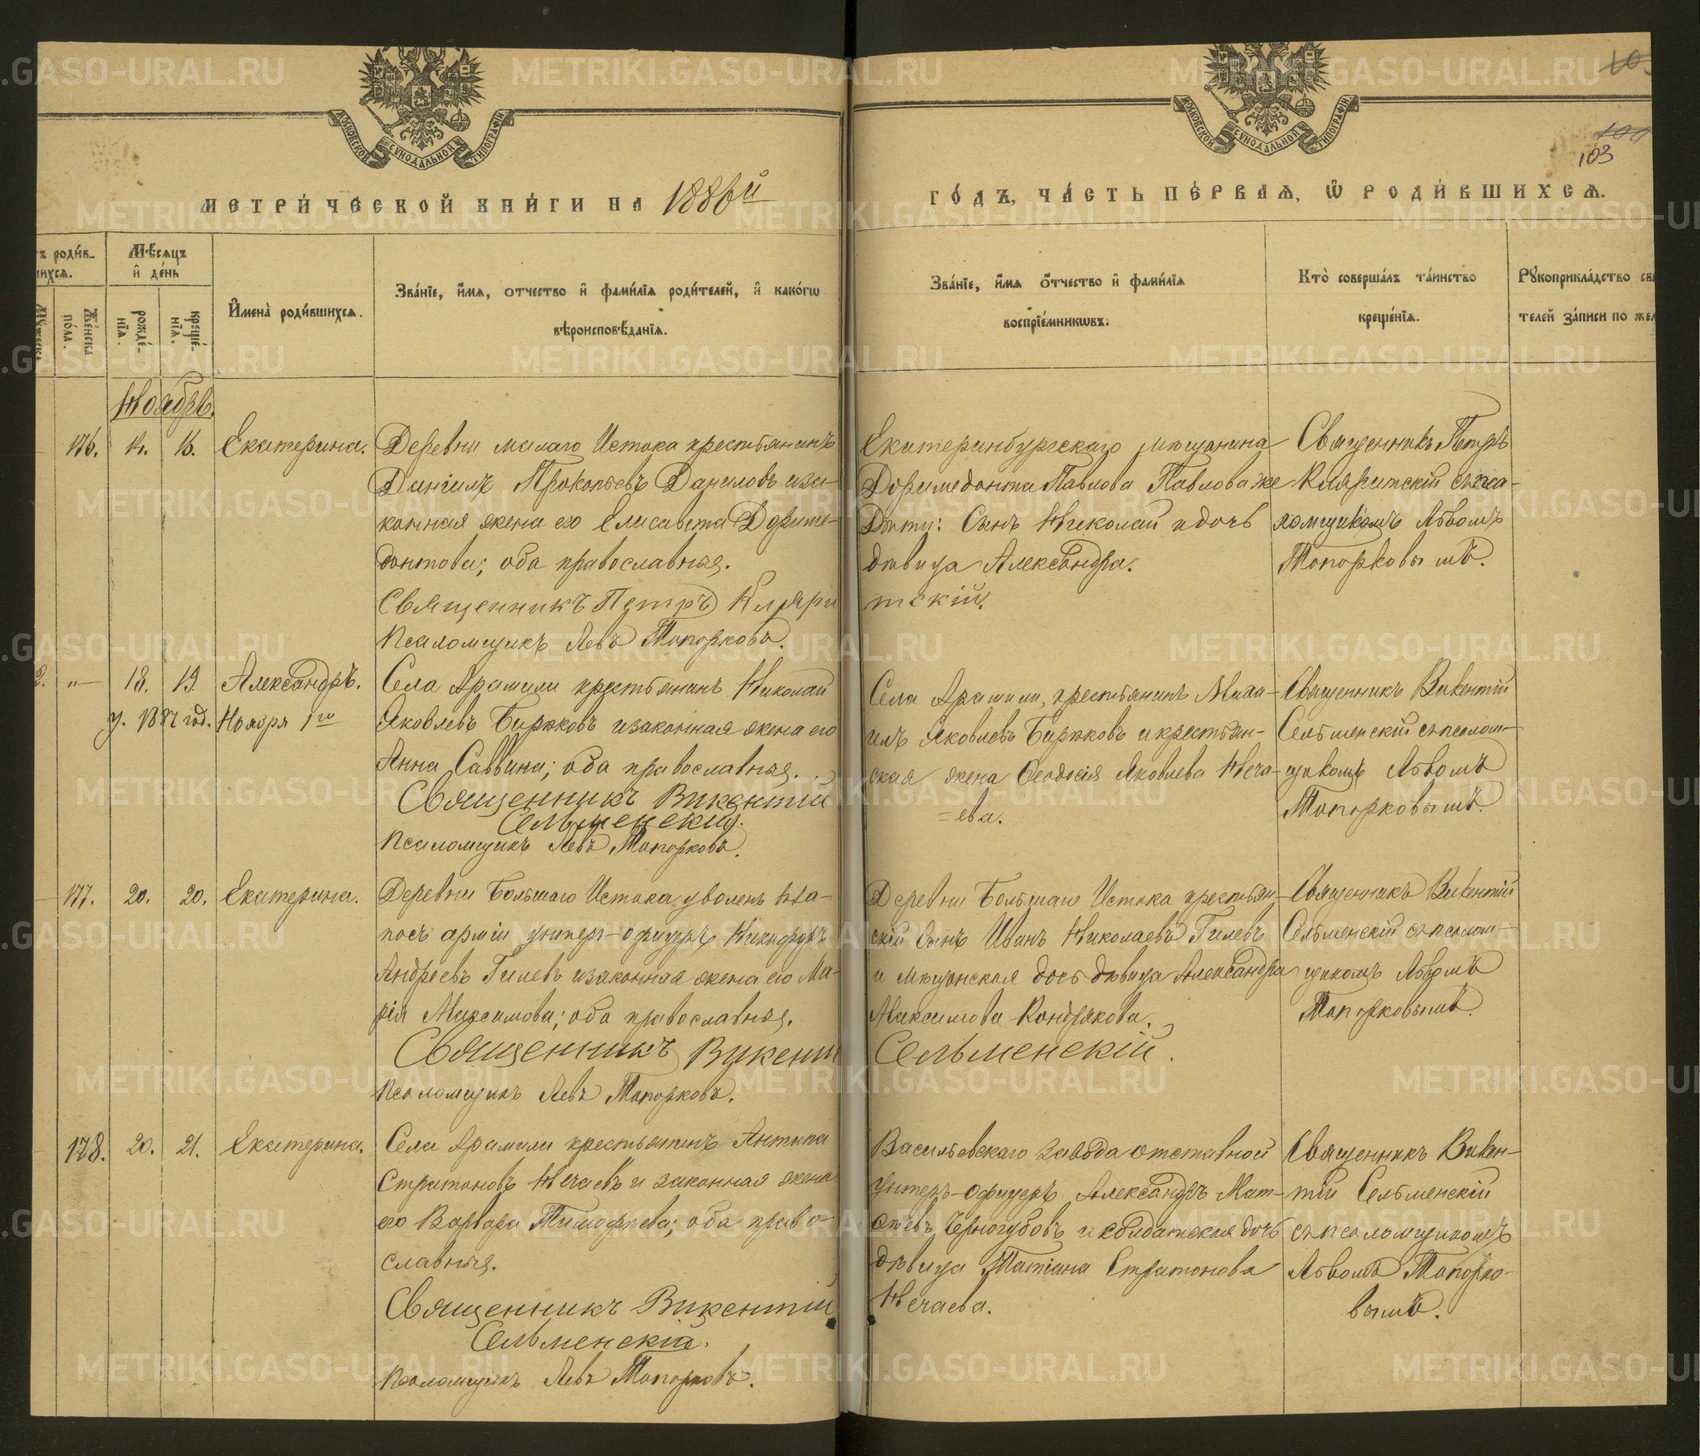 МОСКОВСКОЙ СѴНОДАЛЬНОЙ ТИПОГРАФІИ
МОСКОВСКОЙ СѴНОДАЛЬНОЙ ТИПОГРАФІИ
103
МЕТРИ́ЧЕСКОЙ КНИ́ГИ НА 1886й
ГО́ДЪ, ЧА́СТЬ ПЕ́РВАЯ, Ѡ РОДИ́ВШИХСЯ.
роди́в-
шихся.
Мѣсяцъ
и де́нь
Же́нска
по́ла.
рожде́-
нія.
креще́-
нія.
Имена̀ роди́вшихся.
Зва́ніе, имя, отчество и фами́лія роди́телей, и како́гѡ
вѣроисповѣ́данія.
Зва́ніе, имя отчество и фами́лія
воспріе́мникѡвъ.
Кто̀ соверша́лъ та́инство
креще́нія.
Рꙋкоприкла́дство
телей за́писи по
Ноябрь.
176. 14. 16. Екатерина.
Деревни малаго Истока крестьянинъ
Даніилъ Прокопьевъ Даниловъ и за-
конная жена его Елисавета Дориме-
донтова; оба православныя.
Священникъ Петръ Кляри
тскій.
Псаломщикъ Левъ Топорковъ.
Екатеринбургскаго мѣщанина
Доримедонта Павлова Павлова же
Дѣти: Сынъ Николай и дочь
дѣвица Александра.
Священникъ Петръ
Кляритскій съ псал-
ломщикомъ Львомъ
Топорковымъ.
"— 18. 19. Александръ.
у. 1887 год. Ноября 1го
Села Арамили крестьянинъ Николай
Яковлевъ Бирюковъ и законная жена его
Анна Саввина; оба православныя.
Священникъ Викентій
Сельменскій.
Псаломщикъ Левъ Топорковъ.
Села Арамили, крестьянинъ Миха-
илъ Яковлевъ Бирюковъ и крестьян-
ская жена Ѳеодосія Яковлева Неча-
=ева.
Священникъ Викентій
Сельменскій съ псалом-
щикомъ Львомъ
Топорковымъ.
177. 20. 20. Екатерина.
Деревни Большаго Истока, уволенъ въ за-
пасъ арміи унтеръ-офицеръ Никифоръ
Андреевъ Гилевъ и законная жена его Ма-
рія Максимова; оба православныя.
Священникъ Викентій
Сельменскій.
Псаломщикъ Левъ Топорковъ.
Деревни Большаго Истока крестьян-
скій сынъ Иванъ Николаевъ Гилевъ
и мѣщанская дочь дѣвица Александра
Максимова Кондрякова.
Священникъ Викентій
Сельменскій съ псалом-
щикомъ Львомъ
Топорковымъ.
178. 20. 21. Екатерина.
Села Арамили крестьянинъ Антипа
Стратоновъ Нечаевъ и законная жена
его Варвара Тимофѣева; оба право-
славныя.
Священникъ Викентій
Сельменскій.
Псаломщикъ Левъ Топорковъ.
Васильевскаго завода отставной
унтеръ-офицеръ Александръ Мат-
ѳѣевъ Черногубовъ и солдатская дочь
дѣвица Татіана Стратонова
Нечаева.
Священникъ Викен-
тій Сельменскій
съ псаломщикомъ
Львомъ Топорко-
вымъ.
METRIKI.GASO-URAL.RU